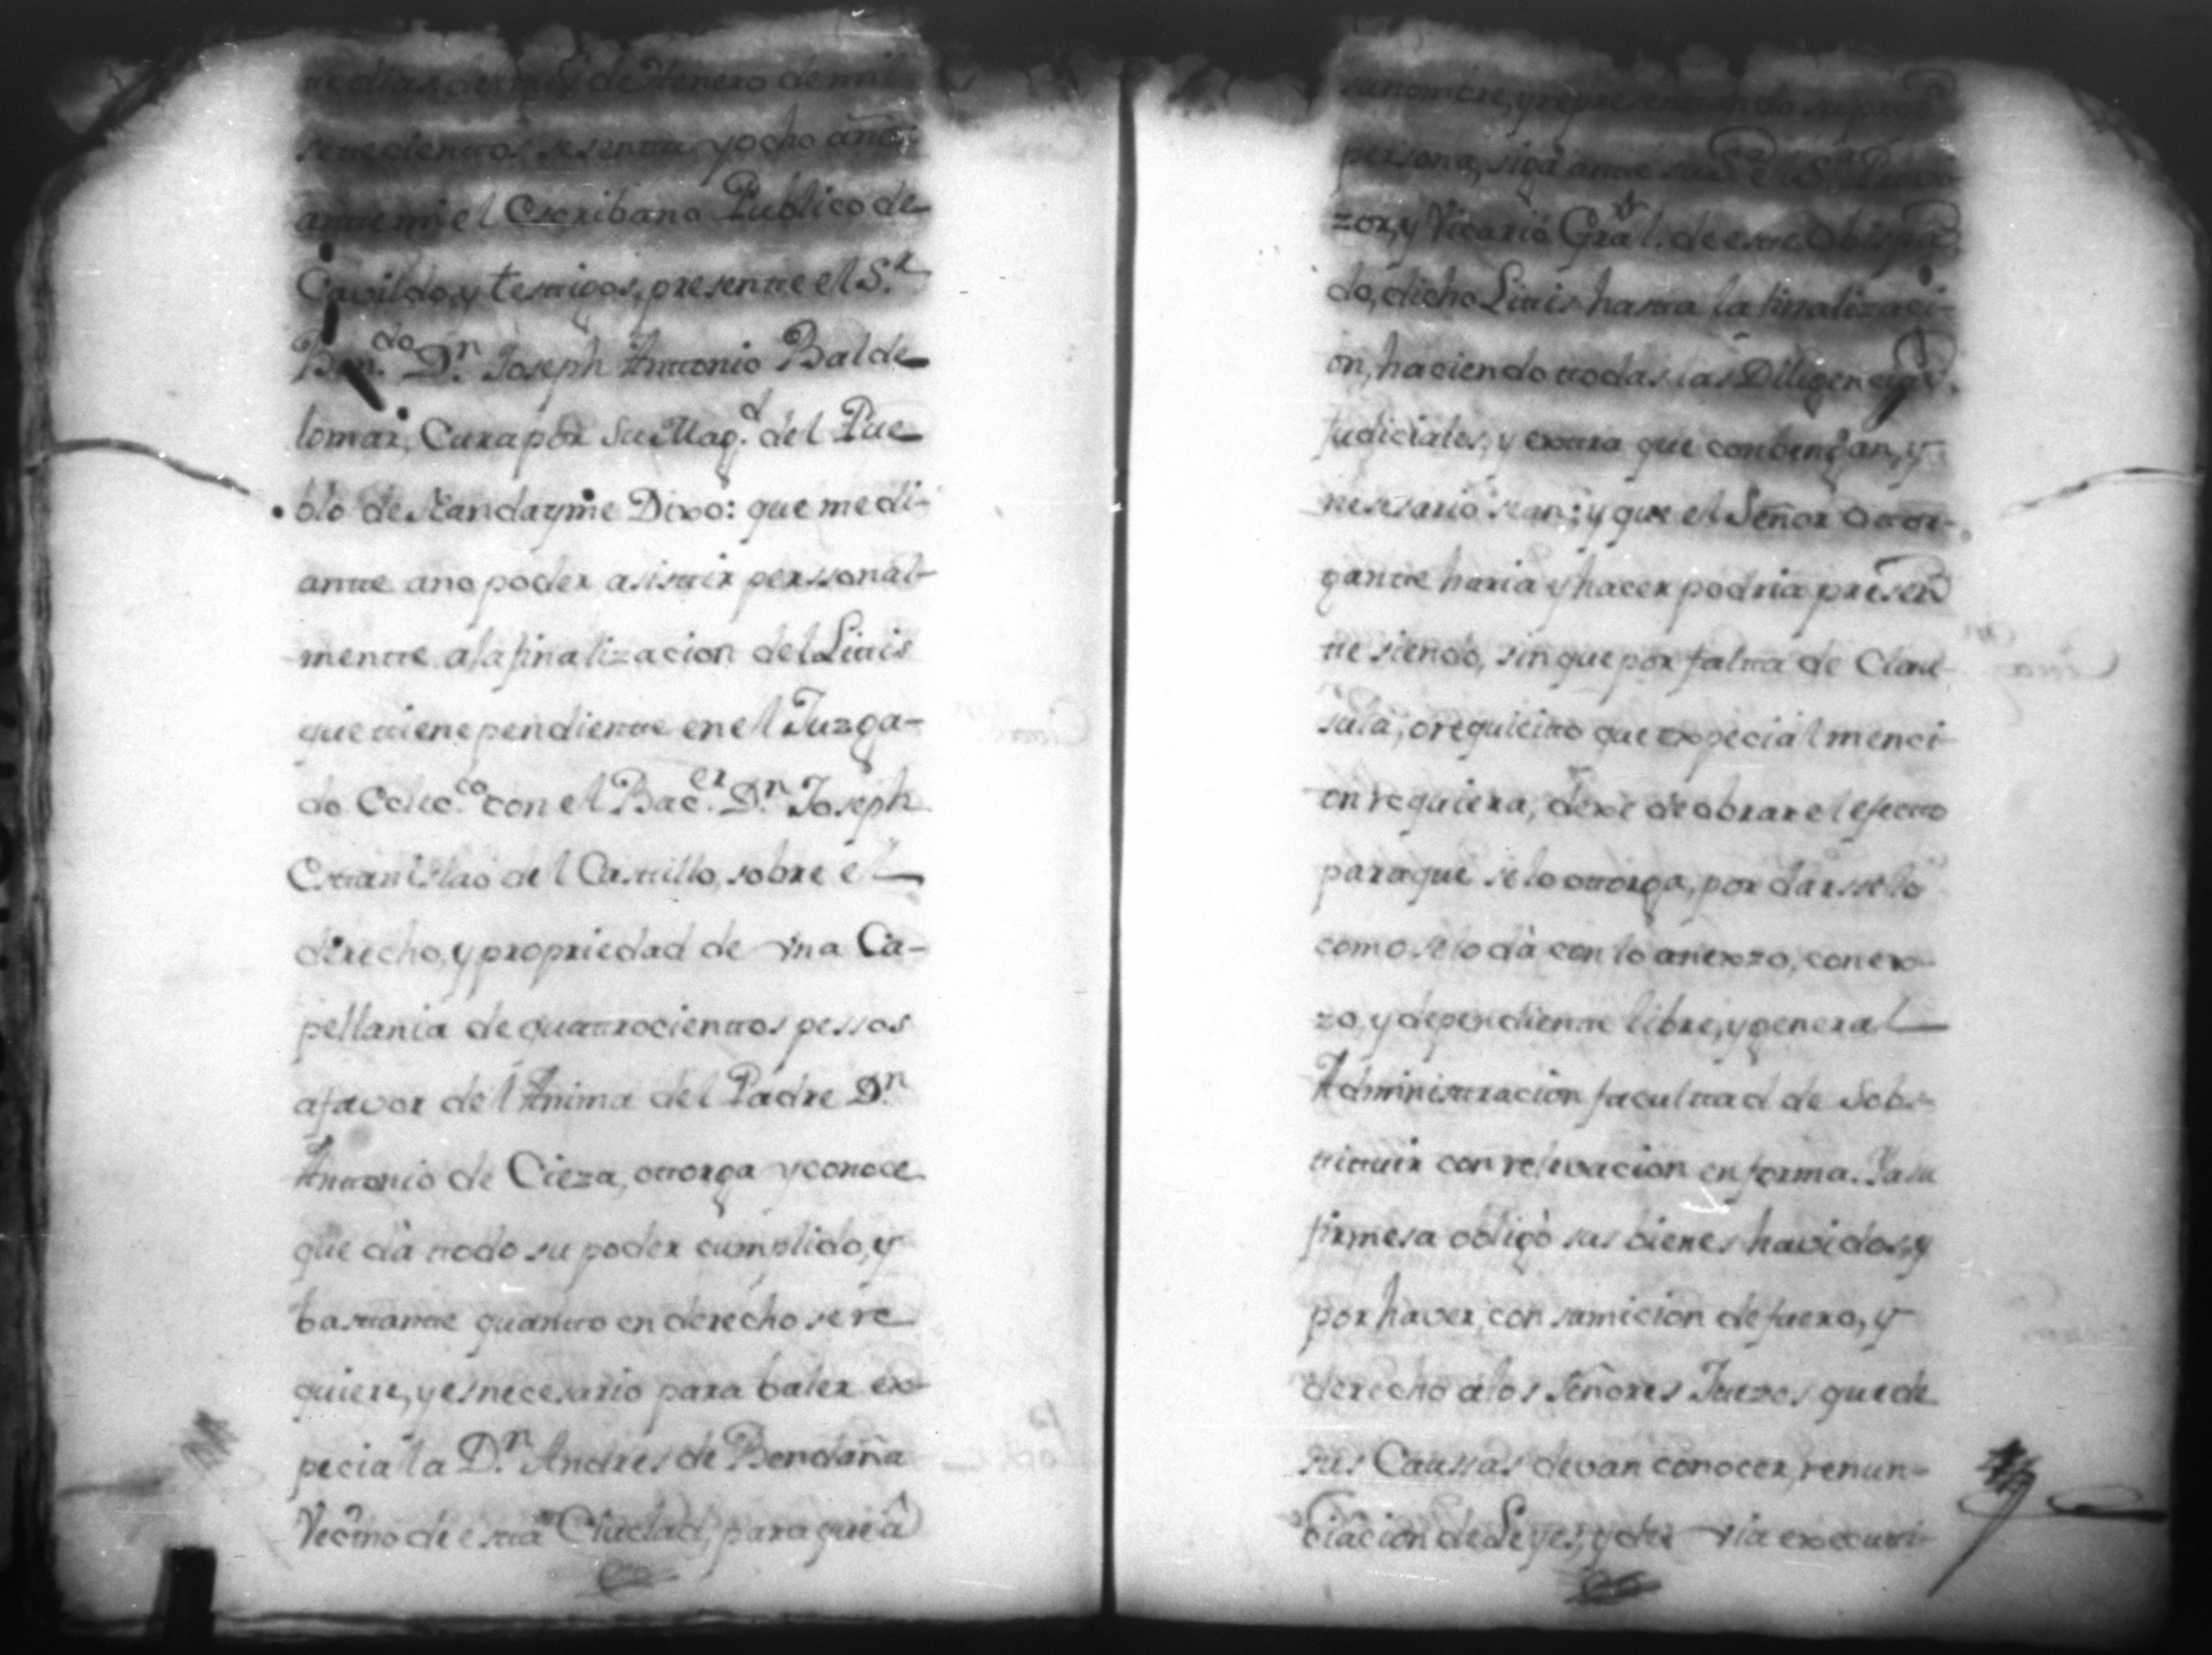 dias del mes de Henero de mil
settecientos sesentta y ocho años
antte mi el Escribano Publico de
Cavildo, y testtigos, presentte el S.r
Ben.do D.n Joseph Anttonio Balde
lomar, Cura por Su Mag.d del Pue
blo de Nandayme Dixo: que medi-
antte ano poder asisttir perssonal-
mentte ala finalizacion del Littis
que ttiene pendientte en el Juzga-
do Ecliec.co con el Bac.er D.n Joseph
Esttanislao del Casttillo, sobre el
derecho, y propriedad de una Ca-
pellania de quattrocienttos pessos
afavor del Anima del Padre D.n
Anttonio de Cieza, ottorga y conoce
que dà ttodo su poder cumplido, y
basttantte quantto en derecho se re
quiere, y es necesario para baler ex-
pecial a D.n Andres de Bendaña
Vecino de estta Ciudad, para que â
su nombre, y representtando su prop.a
persona, siga antte su S.a el S.r Provi
zor, y Vicario Gral. de estte Obispa
do, dicho Littis hastta la finalizaci-
on, haciendo ttodas las Diligencias
Judiciales, y exttra que conbengan, y
nesesario sean; y que el Señor Ottor-
gantte haria y hacer podria presen
tte siendo, sin que por faltta de Clau
sula, o requicitto que expecial menci
on requiera, dexe de obrar el efectto
para que se lo ottorga, por darsselo
como se lo dà con lo anexzo, conex-
zo, y dependientte libre, y general
Administtracion faculttad de Sobs-
ttittuir con relevacion en forma. Ya su
firmesa obligò sus bienes havidos, y
por haver, con sumicion de fuero, y
derecho alos Señores Juezes que de
sus Caussas devan conocer, renun-
ciacion de Leyes, y de via executti-